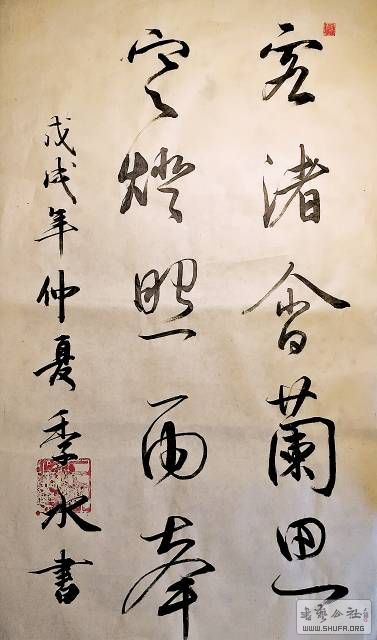 渚會蘭思
寒燈照雨
戊戌年仲夏季水書
书艺公社
WWW.SHUFA.ORG